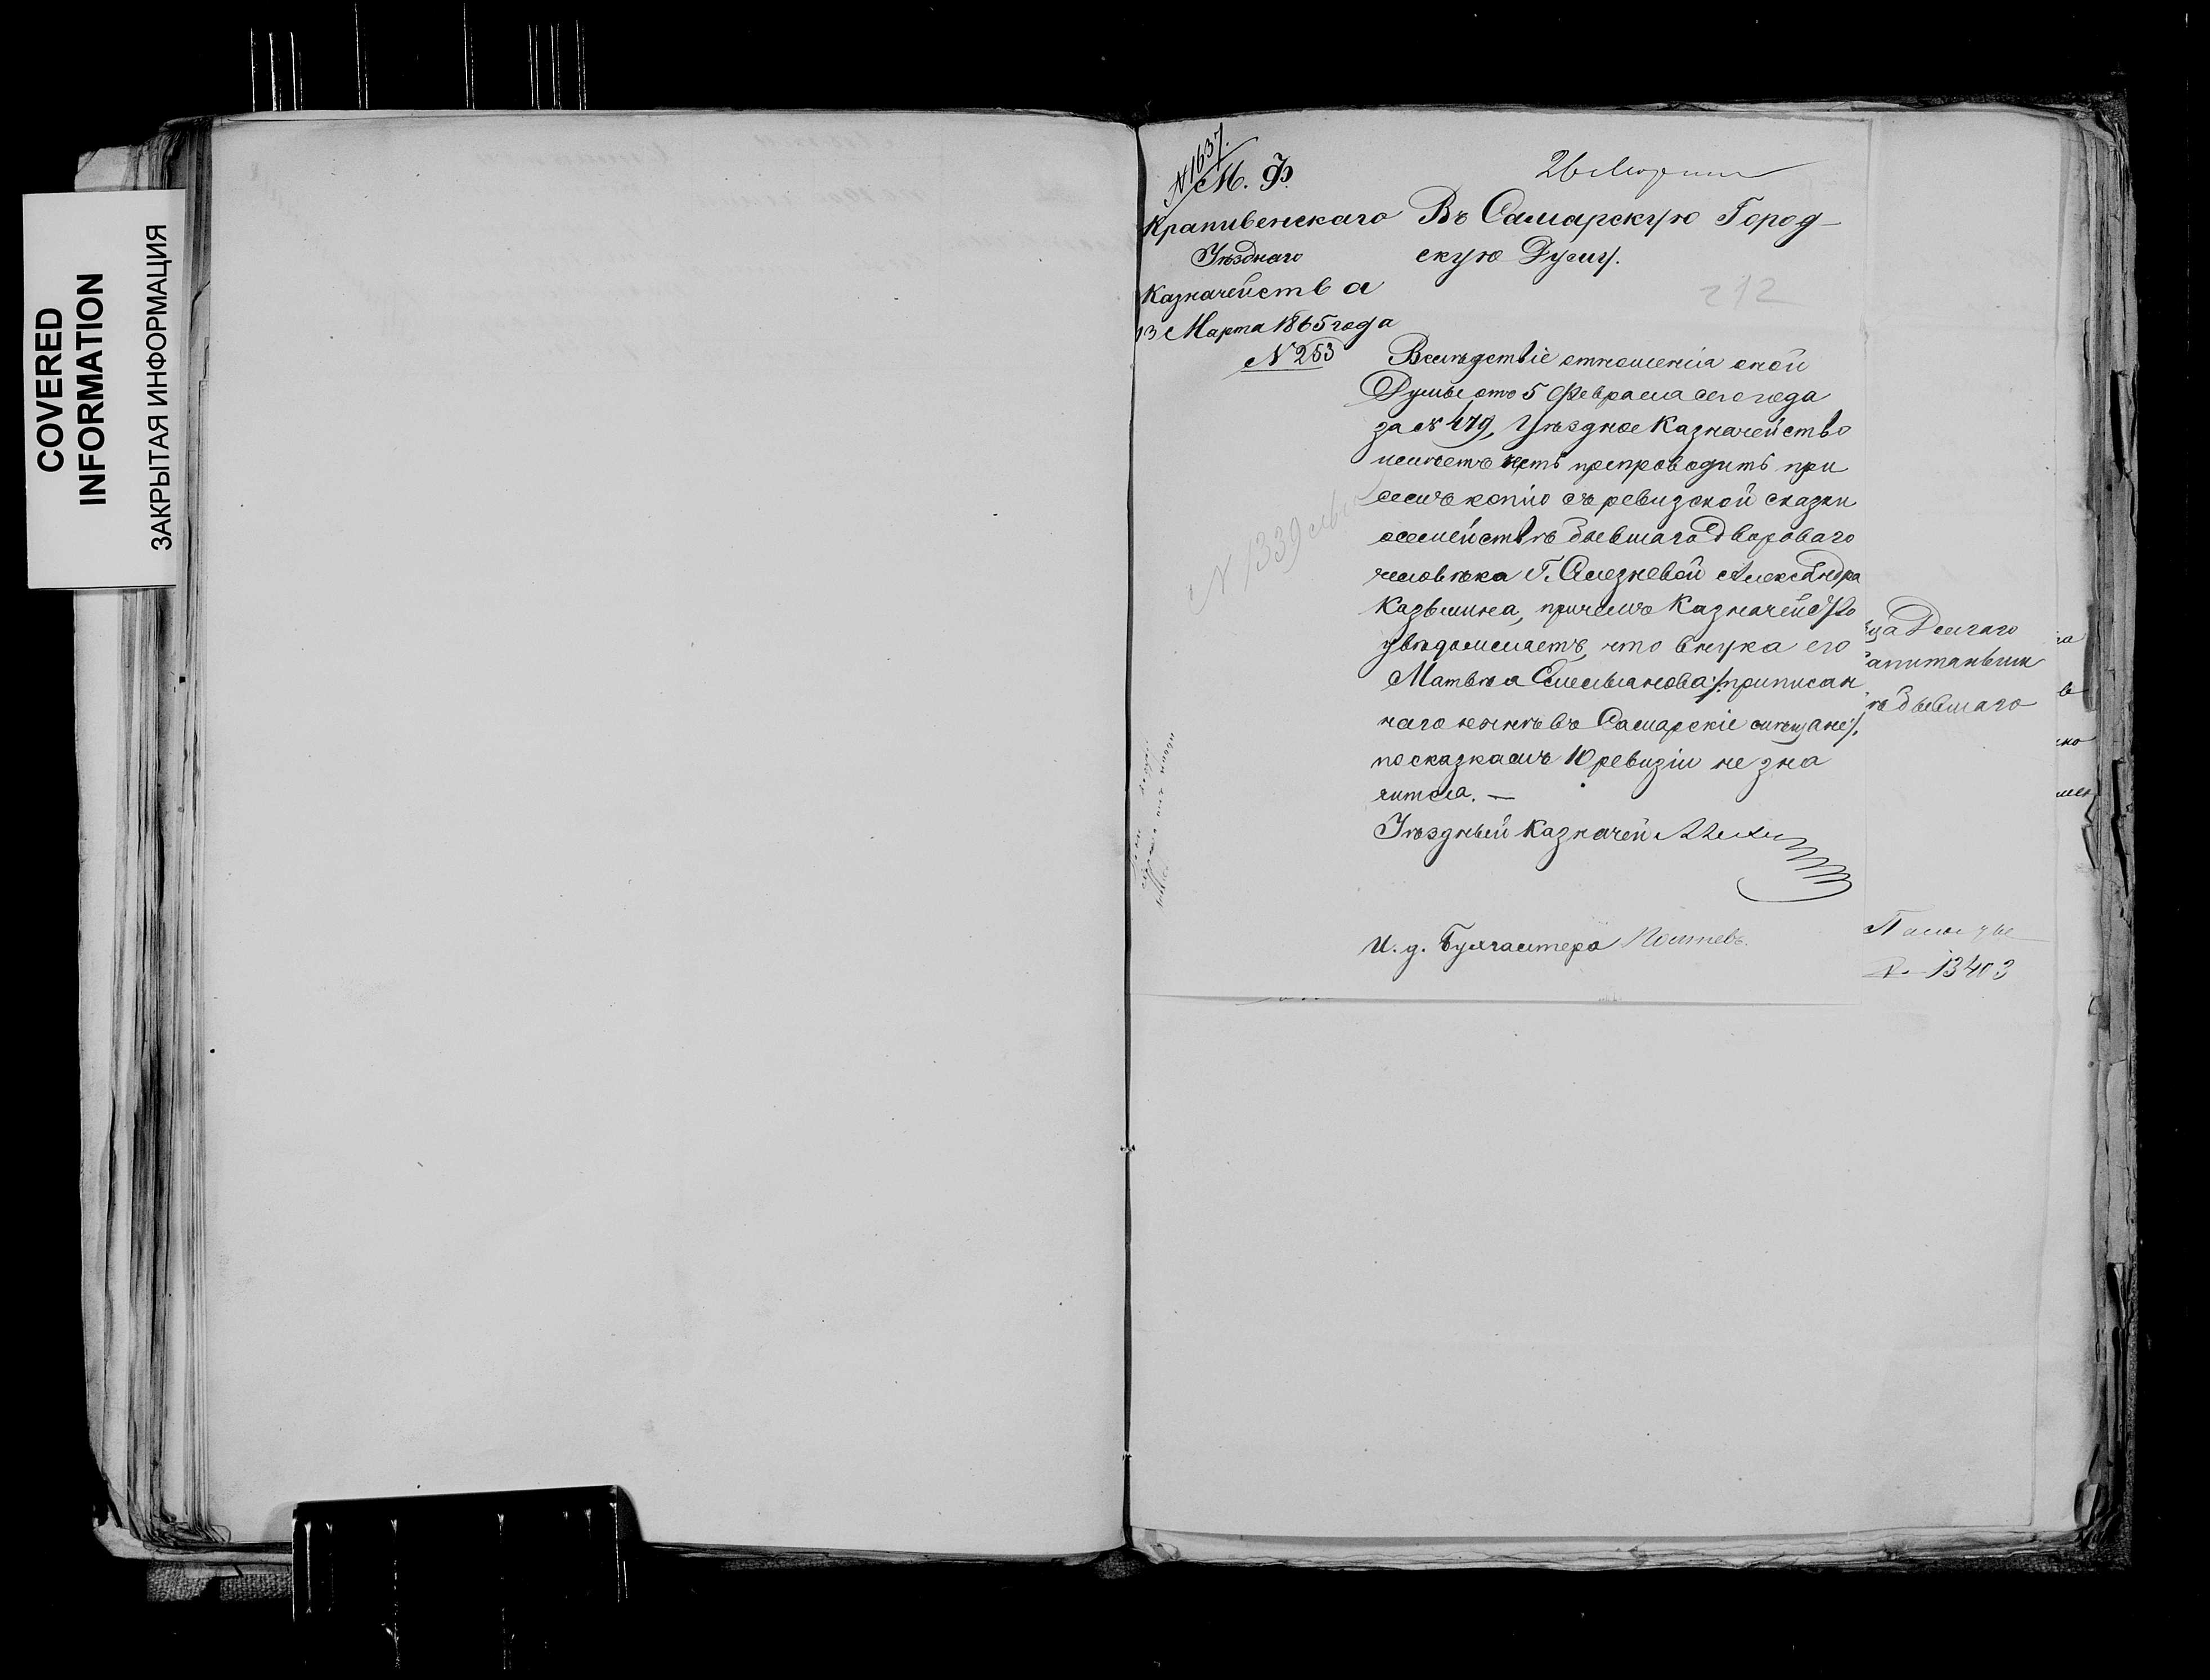 COVERED
INFORMATION
ЗАКРЫТАЯ ИНФОРМАЦИЯ
№ 1637.
М. Ф.
Крапивенскаго
Уѣзднаго
Казначейства
13 Марта 1865 года
№ 253
26 Марта
Въ Самарскую Город-
скую Думу.
212
Вслѣдствіе отношенія оной
Думы отъ 5 Февраля сего года
за № 479, Уѣздное Казначейство
имѣетъ честь препроводить при
семъ копію съ ревизской сказки
о семействѣ бывшаго двороваго
человѣка Г. Александра
Казьмина, причемъ Казначейство
увѣдомляетъ, что внука его
Матвѣя Емельянова /:приписан
наго нынѣ въ Самарскіе мѣщане:/,
по сказкамъ 10 ревизіи не зна
чится. —
Уѣздный Казначей
И. д. Бухгалтера
№ 1339
Долгаго
апитаньши
бывшаго
13403